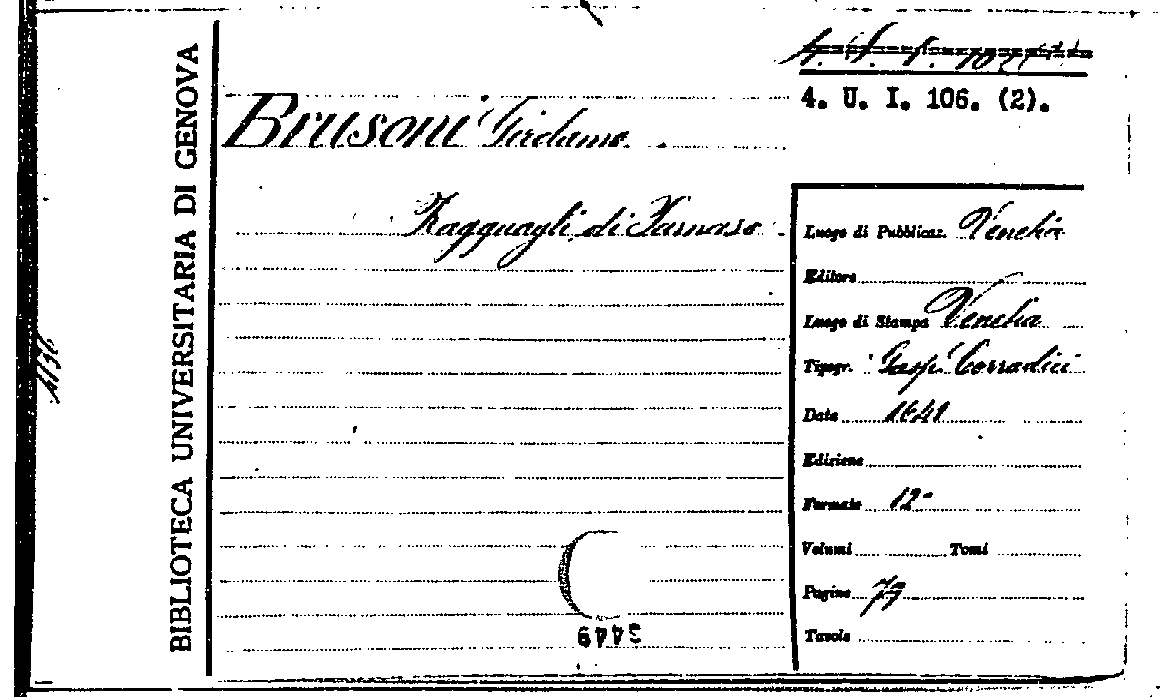 BIBLIOTECA UNIVERSITARIA DI GENOVA
4. U. I. 106. (2).
Brusoni Girolamo.
Ragguagli di Parnaso
Luogo di Pubblicaz. Venetia
Editore
Luogo di Stampa Venetia
Tipogr. Gasp. Corradici
Data 1641
Edizione
Formato 12°
Volumi Tomi
Pagine 79
Tavole
3449